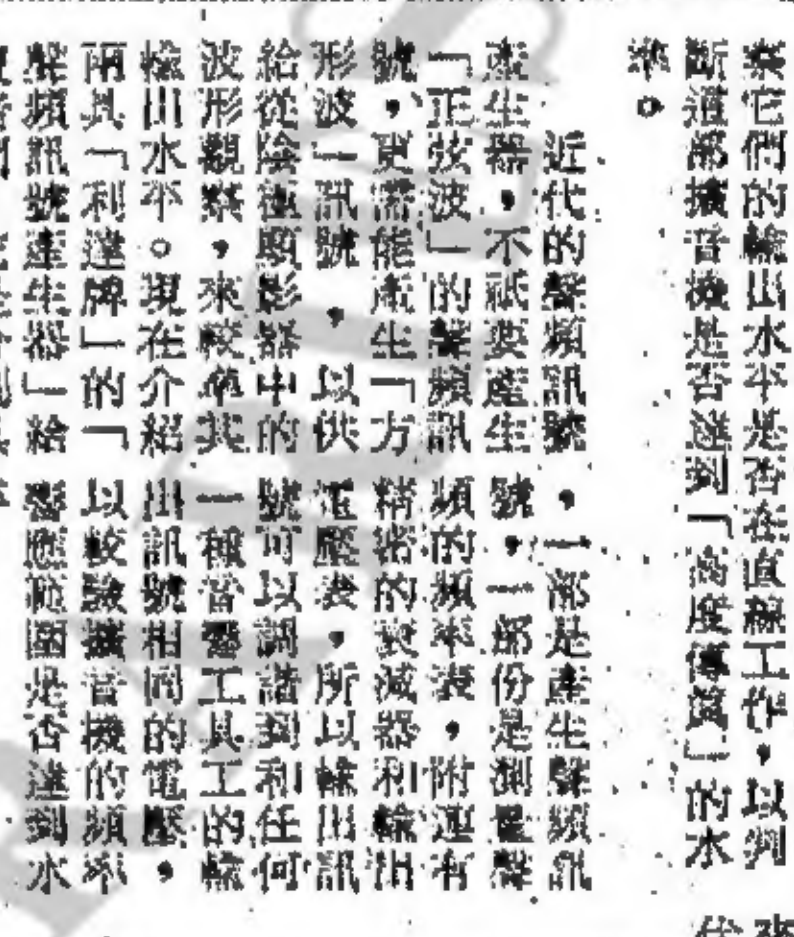 察它們的輸出水平是否在直線工作，以判
斷這部擴音機是否達到「高度傳眞」的水
準。
近代的聲頻訊號
產生器，不祇要產生
「正弦波」的聲頻訊
號，更需能產生「方
形波」訊號，以供
給從陰極顯影器中的
波形觀察，來較準其
輸出水平。現在介紹
兩具「利達牌」的「
聲頻訊號產生器」給
，一部是產生聲頻訊
號，一部份是測量聲
頻的頻率表，附連有
精密的衰減器和輸出
電壓表，所以輸出訊
號可以調諧到和任何
一種音響工具工的輸
出訊號相同的電壓，
以校驗擴音機的頻率
響應範圍是否達到水